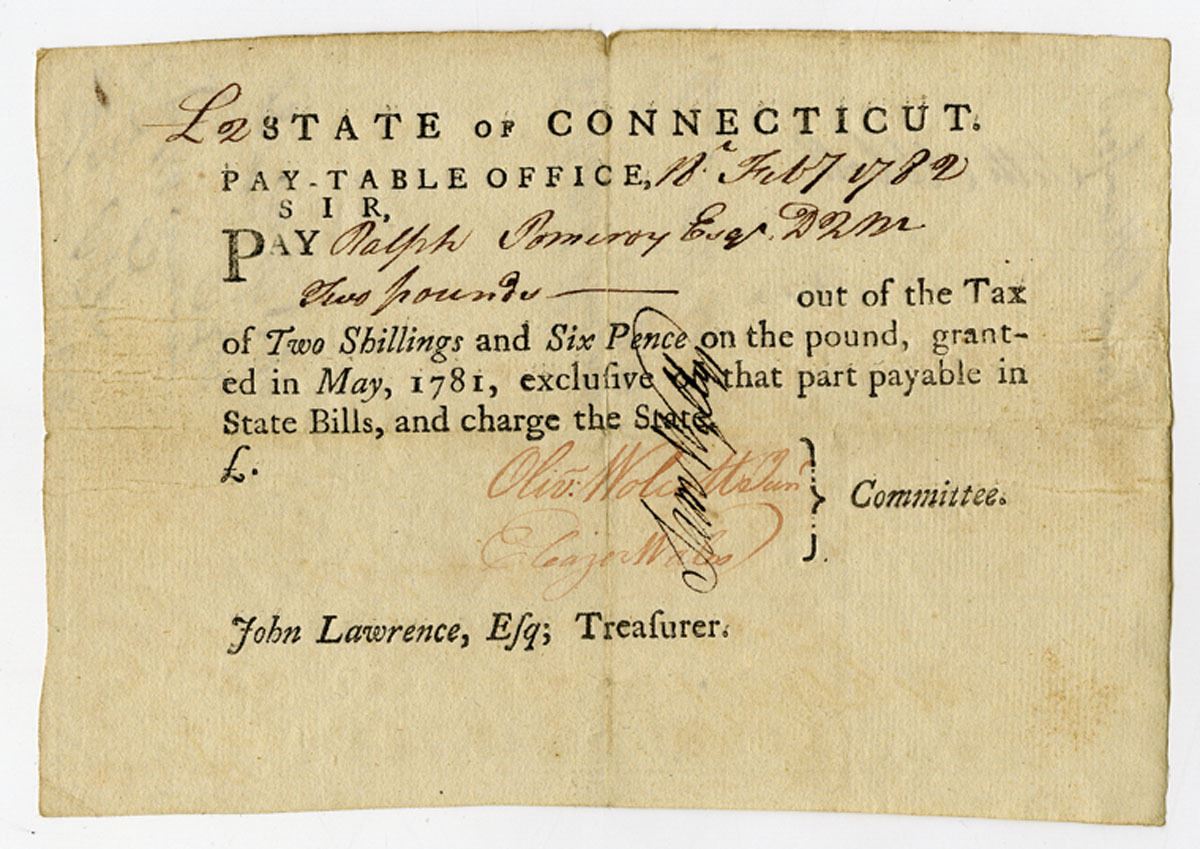 £2 STATE OF CONNECTICUT.
PAY-TABLE OFFICE, 18.ͭ Feby 1782
SIR,
PAY Ralph Pomeroy Esqr. DQM
Two pounds —
out of the Tax
of Two Shillings and Six Pence on the pound, grant-
ed in May, 1781, exclusive of that part payable in
State Bills, and charge the State.
£.
Olivr. Wolcott Junr
} Committee.
Eleazer Wales
Sam Wyllys
John Lawrence, Eſq; Treaſurer.